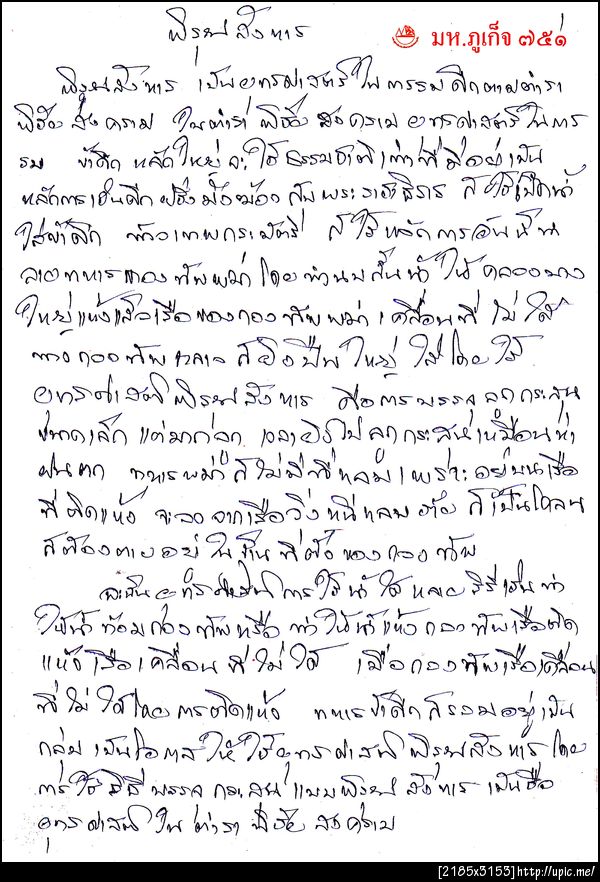 พิรุฬสังหาร
มห.ภูเก็จ ๗๕๑
พิรุฬสังหาร เป็นยุทธศาสตร์ในการรบศึกตามตำรา
พิชัยสงคราม ในตำราพิชัยสงครามยุทธศาสตร์ในการ
รบ ข้าศึก หลักใหญ่จะใช้ธรรมชาติเท่าที่มีอยู่เป็น
หลักการเช่นศึก
ใส่ข้าศึก ท้าวเทพกระษัตรี ก็ใช้หลักการอันนั้น
ทหารของทัพพม่าโดยทำนบกั้นน้ำให้คลองบาง
ใหญ่แห้งแล้วเรือของกองทัพพม่าเคลื่อนที่ไม่ได้
ทางกองทัพถลางก็ยิงปืนใหญ่ใส่โดยใช้
ยุทธศาสตร์พิรุฬสังหาร คือการบรรจุลูกกระสุน
ขนาดเล็ก แต่มากลูก เวลายิงไปลูกกระสุนเหมือนห่า
ฝนตก ทหารพม่าก็ไม่มีที่หลบเพราะอยู่บนเรือ
ที่ติดแห้ง จะลงจากเรือวิ่งหนีหลบภัยก็เป็นโคลน
ก็ต้องตายอยู่ในนั้นที่ตั้งของกองทัพ
ฉะนั้นยุทธศาสตร์การใช้น้ำได้หลายวิธีเช่นทำ
ให้น้ำท่วมกองทัพหรือทำให้น้ำแห้งกองทัพเรือติด
แห้งเรือเคลื่อนที่ไม่ได้ เมื่อกองทัพเรือเคลื่อน
ที่ไม่ได้โดยการติดแห้ง ทหารข้าศึกก็รวมอยู่เป็น
กลุ่มเป็นโอกาสให้ใช้ยุทธศาสตร์พิรุฬสังหารโดย
การใช้วิธีบรรจุกระสุนแบบพิรุฬสังหาร เป็นชื่อ
ยุทธศาสตร์ในตำราพิชัยสงคราม
[2185x3153]http://upic.me/